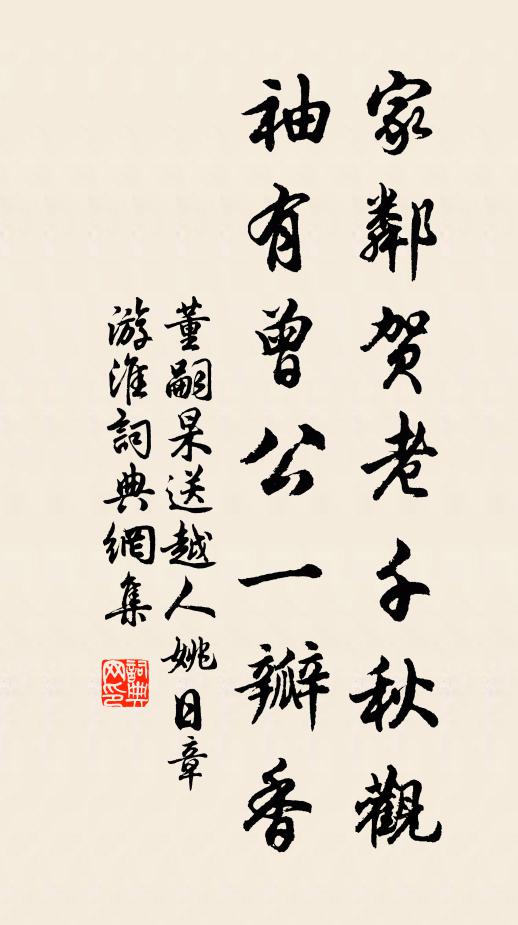 家鄰賀老千秋觀
袖有曾公一瓣香
董嗣杲送越人姚日章
游淮詞典網集
詞典网印